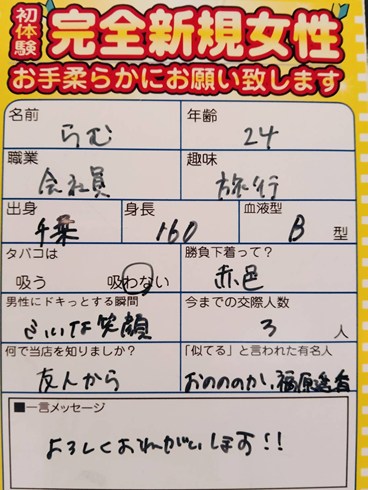 初体験
完全新規女性
お手柔らかにお願い致します
名前 らむ
年齢 24
職業 会社員
趣味 旅行
出身 千葉
身長 160
血液型 B 型
タバコは
吸う 吸わない
勝負下着って?
赤色
男性にドキっとする瞬間
きれいな笑顔
今までの交際人数
3 人
何で当店を知りましたか?
友人から
「似てる」と言われた有名人
おのののか、福原遥
■一言メッセージ
よろしくおねがいします!!